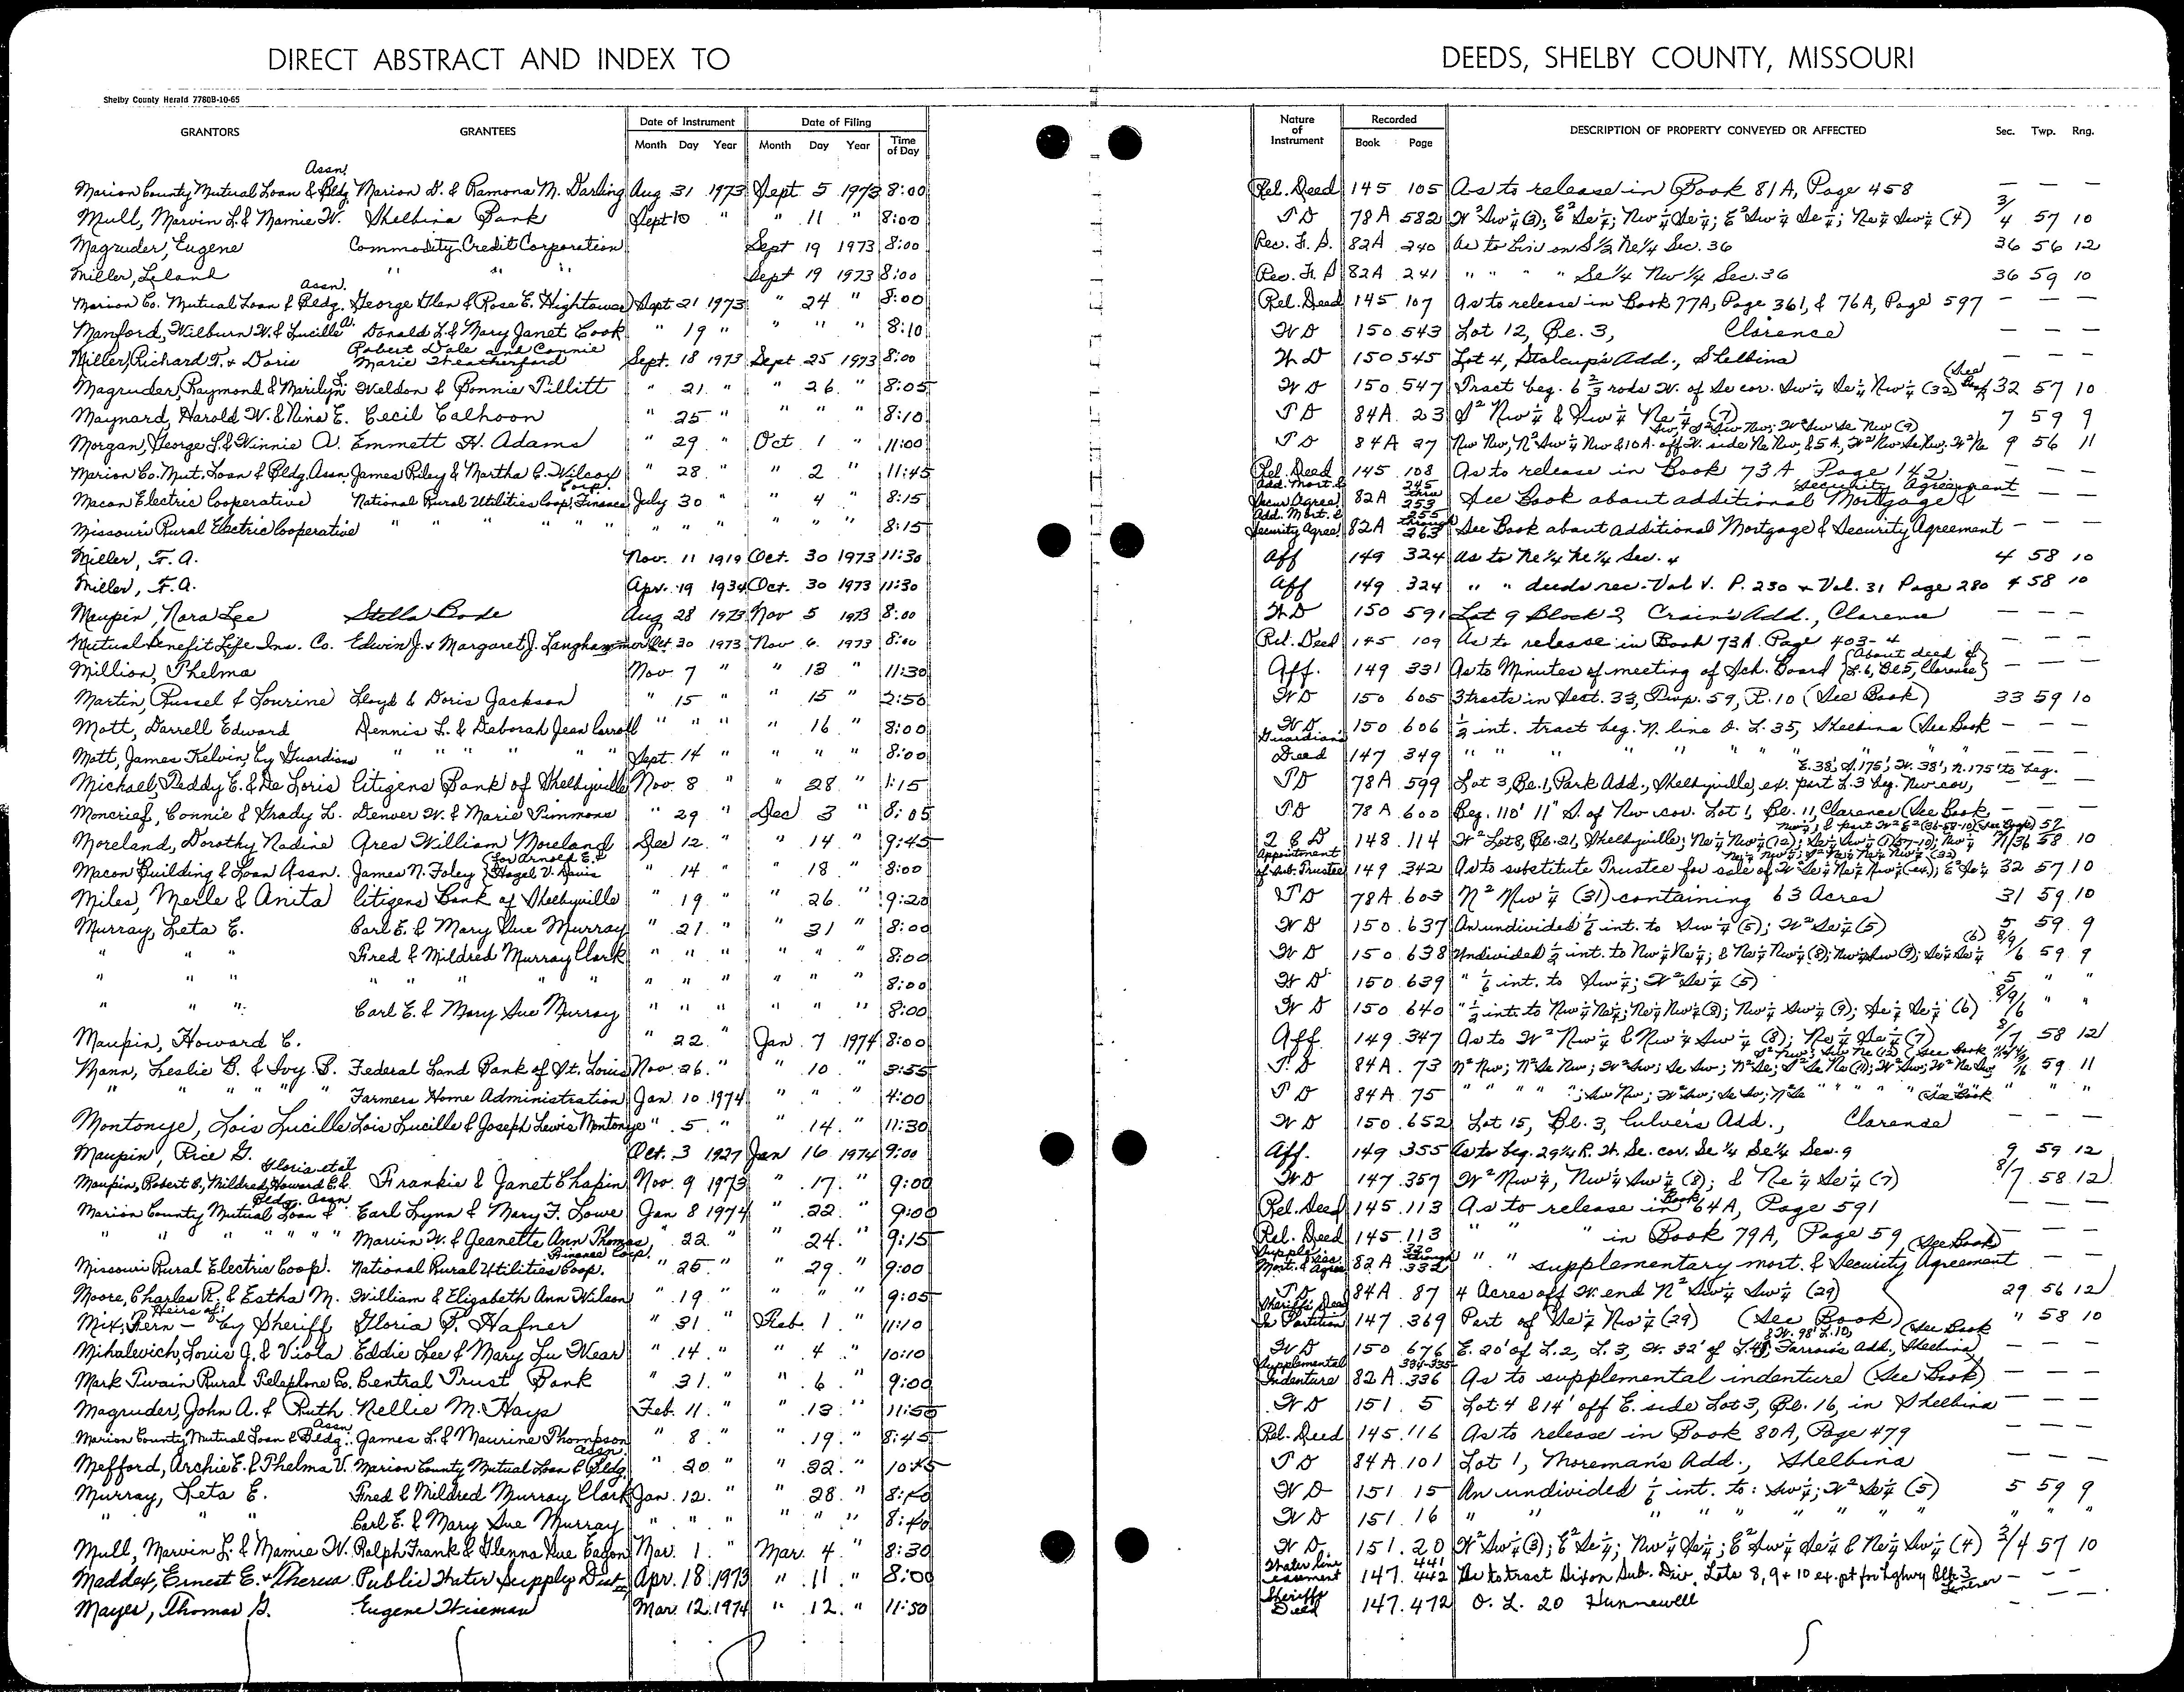 DIRECT ABSTRACT AND INDEX TO DEEDS, SHELBY COUNTY, MISSOURI
Shelby County Herald 7780B-10-65
GRANTORS GRANTEES Date of Instrument Month Day Year Date of Filing Month Day Year Time of Day Nature of Instrument Recorded Book Page DESCRIPTION OF PROPERTY CONVEYED OR AFFECTED Sec. Twp. Rng.
Marion County Mutual Loan & Bldg Assn. Marion D. & Ramona M. Darling Aug 31 1973 Sept 5 1973 8:00 Rel. Deed 145 105 As to release in Book 81A, Page 458 — — —
Mull, Marvin L. & Mamie W. Shelbina Bank Sept 10 " " 11 " 8:00 T D 78A 582 W² Sw¼ (3); E² Se¼; Nw¼ Se¼; E² Sw¼ Se¼; Ne¼ Sw¼ (4) 3/4 57 10
Magruder, Eugene Commodity Credit Corporation Sept 19 1973 8:00 Rec. F. S. 82A 240 as to bin on S½ Ne¼ Sec. 36 36 56 12
Miller, Leland " " " Sept 19 1973 8:00 Rec. F. S 82A 241 " " " " Se¼ Nw¼ Sec. 36 36 59 10
Marion Co. Mutual Loan & Bldg. Assn. George Glen & Rose E. Hightower Sept 21 1973 " 24 " 8:00 Rel. Deed 145 107 As to release in Book 77A, Page 361, & 76A, Page 597 — — —
Manford, Wilburn W. & Lucille A. Donald L. & Mary Janet Cook " 19 " " " " 8:10 W D 150 543 Lot 12, Bl. 3, Clarence — — —
Miller, Richard T. & Doris Robert Dale and Connie Marie Weatherford Sept. 18 1973 Sept 25 1973 8:00 W D 150 545 Lot 4, Stalcup's Add., Shelbina — — —
Magruder, Raymond & Marilyn L. Weldon & Bonnie Tillitt " 21 " " 26 " 8:05 W D 150 547 Tract beg. 6 2/3 rods W. of Se cor. Sw¼ Se¼ Nw¼ (32) (See Book 32 57 10
Maynard, Harold W. & Nina E. Cecil Calhoon " 25 " " " " 8:10 T D 84A 23 S² Nw¼ & Sw¼ Ne¼ (7) 7 59 9
Morgan, George L. & Winnie A. Emmett H. Adams " 29 " Oct 1 " 11:00 T D 84A 27 Nw Nw, N² Sw¼ Nw & 10 A. off W. side Ne Nw, & 5 A, W² Nw Se Nw, 9 56 11
Marion Co. Mut. Loan & Bldg. Assn. James Riley & Martha C. Wilcox " 28 " " 2 " 11:45 Rel. Deed 145 108 As to release in Book 73A Page 142 — — —
Macon Electric Cooperative National Rural Utilities Coop. Finance Corp. July 30 " " 4 " 8:15 Add. Mort. & Secur. Agree. 82A 245 thru 253 See Book about additional Mortgage & Security Agreement — —
Missouri Rural Electric Cooperative " " " " " " " " " " " 8:15 Add. Mort. & Security Agree. 82A 255 through 263 See Book about Additional Mortgage & Security Agreement — — —
Miller, F. A. Nov. 11 1919 Oct. 30 1973 11:30 Aff 149 324 as to Ne¼ Ne¼ Sec. 4 4 58 10
Miller, F. A. Apr. 19 1934 Oct. 30 1973 11:30 Aff 149 324 " " deeds rec. Vol V. P. 230 & Vol. 31 Page 280 4 58 10
Maupin, Nora Lee Stella Bode Aug 28 1973 Nov 5 1973 8:00 W D 150 591 Lot 9 Block 2 Crain's Add., Clarence — — —
Mutual Benefit Life Ins. Co. Edwin J. & Margaret J. Langhammer Oct. 30 1973 Nov 6. 1973 8:00 Rel. Deed 145 109 As to release in Book 73A. Page 403-4 — — —
Million, Thelma Nov 7 " " 13 " 11:30 Aff. 149 331 As to Minutes of meeting of Sch. Board (About deed of L. 6, Bl. 5, Clarence) — — —
Martin, Russel & Lourine Lloyd & Doris Jackson " 15 " " 15 " 2:50 W D 150 605 3 tracts in Sect. 33, Twp. 59, R. 10 (See Book) 33 59 10
Mott, Darrell Edward Dennis L. & Deborah Jean Carroll " " " " 16 " 8:00 W D 150 606 ½ int. tract beg. N. line O. L. 35, Shelbina (See Book — — —
Mott, James Kelvin, by Guardian " " " " " Sept. 14 " " " " 8:00 Guardian's Deed 147 349 " " " " " " " " " — — —
Michael, Teddy E. & De Loris Citizens Bank of Shelbyville Nov. 8 " " 28 " 1:15 T D 78A 599 Lot 3, Bl. 1, Park Add., Shelbyville, ex. part L. 3 beg. Nw cor., E. 38', S. 175', W. 38', N. 175' to beg. —
Moncrief, Connie & Grady L. Denver W. & Marie Timmons " 29 " Dec 3 " 8:05 T D 78A 600 Beg. 110' 11" S. of Nw cor. Lot 1, Bl. 11, Clarence (See Book — — —
Moreland, Dorothy Nadine Ares William Moreland Dec 12 " " 14 " 9:45 Q C D 148 114 W² Lot 8, Bl. 21, Shelbyville; Ne¼ Nw¼ (12); 58 10
Macon Building & Loan Assn. James N. Foley (for Arnold E. & Hazel V. Davis " 14 " " 18 " 8:00 Appointment of Sub. Trustee 149 342 As to substitute Trustee for sale of 32 57 10
Miles, Merle & Anita Citizens Bank of Shelbyville " 19 " " 26 " 9:20 T D 78A 603 N² Nw¼ (31) containing 63 Acres 31 59 10
Murray, Leta E. Carl E. & Mary Sue Murray " 21 " " 31 " 8:00 W D 150 637 An undivided 1/6 int. to Sw¼ (5); W² Se¼ (5) 5 59 9
" " " Fred & Mildred Murray Clark " " " " " " 8:00 W D 150 638 Undivided ½ int. to Nw¼ Ne¼; & Ne¼ Nw¼ (8); Nw¼ Sw (9); Se¼ Se¼ (6) 8/9/6 59 9
" " " " " " " " " " " " " 8:00 W D 150 639 " 1/6 int. to Sw¼; W² Se¼ (5) 5 " "
" " " Carl E. & Mary Sue Murray " " " " " " 8:00 W D 150 640 " ½ int to Nw¼ Ne¼; Ne¼ Nw¼ (8); Nw¼ Sw¼ (9); Se¼ Se¼ (6) 8/9/6 " "
Maupin, Howard C. " 22 " Jan 7 1974 8:00 Aff. 149 347 As to W² Nw¼ & Nw¼ Sw¼ (8); Ne¼ Se¼ (7) 8/7 58 12
Mann, Leslie B. & Ivy B. Federal Land Bank of St. Louis Nov. 26 " " 10 " 3:55 T. D 84A 73 N² Nw; N² Se Nw; W² Sw; Se Sw; N² Se; 59 11
" " " " " Farmers Home Administration Jan. 10 1974 " " " 4:00 T D 84A 75 " " " " "; Sw Nw; W² Sw; Se Sw; N² Se " " " " (See Book " " "
Montonye, Lois Lucille Lois Lucille & Joseph Lewis Montonye " 5 " " 14 " 11:30 W D 150 652 Lot 15, Bl. 3, Culver's Add., Clarence — — —
Maupin, Rice G. Oct. 3 1927 Jan 16 1974 9:00 Aff. 149 355 As to beg. 29¼ R. W. Se. cor. Se¼ Se¼ Sec. 9 9 59 12
Maupin, Robert B., Mildred, Howard C. & Gloria et al Frankie & Janet Chapin Nov. 9 1973 " 17 " 9:00 W D 147 357 W² Nw¼, Nw¼ Sw¼ (8); & Ne¼ Se¼ (7) 8/7 58 12
Marion County Mutual Loan & Bldg. Assn Earl Lynn & Mary F. Lowe Jan 8 1974 " 22 " 9:00 Rel. Deed 145 113 As to release in Book 64A, Page 591 — — —
" " " " " " Marvin W. & Jeanette Ann Thomas " 22 " " 24 " 9:15 Rel. Deed 145 113 " " " in Book 79A, Page 59 — — —
Missouri Rural Electric Coop. National Rural Utilities Coop. Finance Corp. " 25 " " 29 " 9:00 Supple. Mort. & Sec. Agree 82A 330 through 332 " " supplementary mort. & Security Agreement (See Book) — —
Moore, Charles R. & Estha M. William & Elizabeth Ann Wilson " 19 " " " " 9:05 T D 84A 87 4 Acres off W. end N² Sw¼ Sw¼ (29) 29 56 12
Mix, Fern — Heirs of; by Sheriff Gloria P. Hafner " 31 " Feb. 1 " 11:10 Sheriff's Deed In Partition 147 369 Part of Se¼ Nw¼ (29) (See Book) " 58 10
Mihalevich, Louis J. & Viola Eddie Lee & Mary Lu Wear " 14 " " 4 " 10:10 W D 150 676 E. 20' of L. 2, L. 3, W. 32' of L. 4, & W. 98' L. 10, Farrow's Add., Shelbina (See Book — — —
Mark Twain Rural Telephone Co. Central Trust Bank " 31 " " 6 " 9:00 Supplemental Indenture 82A 334-335 336 As to supplemental indenture (See Book) — — —
Magruder, John A. & Ruth Nellie M. Hays Feb. 11 " " 13 " 11:50 W D 151 5 Lot 4 & 14' off E. side Lot 3, Bl. 16, in Shelbina — — —
Marion County Mutual Loan & Bldg. Assn James L. & Maurine Thompson " 8 " " 19 " 8:45 Rel. Deed 145 116 As to release in Book 80A, Page 479 — — —
Mefford, Archie E. & Thelma V. Marion County Mutual Loan & Bldg. Assn. " 20 " " 22 " 10:45 T D 84A 101 Lot 1, Moreman's Add., Shelbina — — —
Murray, Leta E. Fred & Mildred Murray Clark Jan. 12 " " 28 " 8:40 W D 151 15 An undivided 1/6 int. to: Sw¼; W² Se¼ (5) 5 59 9
" " " Carl E. & Mary Sue Murray " " " " " " 8:40 W D 151 16 " " " " " " " " "
Mull, Marvin L. & Mamie W. Ralph Frank & Glenna Sue Eagon Mar. 1 " Mar. 4 " 8:30 W D 151 20 W² Sw¼ (3); E² Se¼; Nw¼ Se¼; E² Sw¼ Se¼ & Ne¼ Sw¼ (4) 3/4 57 10
Maddex, Ernest E. & Theresa Public Water Supply Dist. Apr. 18 1973 " 11 " 8:00 Water line easement 147 441 442 As to tract Dixon Sub. Div. Lots 8, 9 & 10 ex. pt for hghwy Blk 3 — — —
Mayes, Thomas G. Eugene Wiseman Mar. 12 1974 " 12 " 11:50 Sheriff's Deed 147 472 O. L. 20 Hunnewell — — —